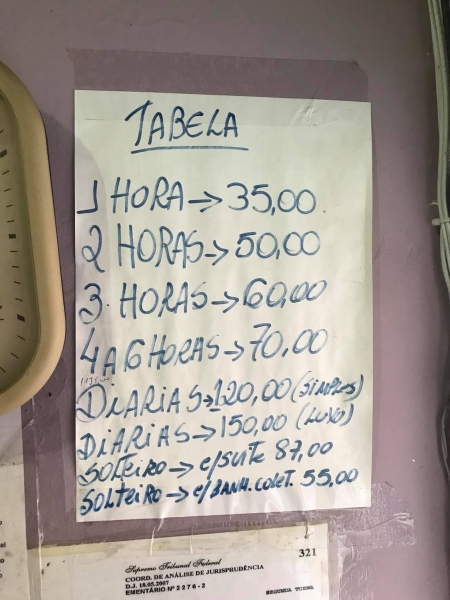 TABELA
1 HORA → 35,00
2 HORAS → 50,00
3 HORAS → 60,00
4 A 6 HORAS → 70,00
DIARIAS → 120,00 (SIMPLES)
DIARIAS → 150,00 (LUXO)
SOLTEIRO → c/SUITE 87,00
SOLTEIRO → c/BANH. COLET. 55,00
Supremo Tribunal Federal
321
COORD. DE ANÁLISE DE JURISPRUDÊNCIA
D.J. 18.05.2007
EMENTÁRIO Nº 2 2 7 6 - 2
SEGUNDA TURMA